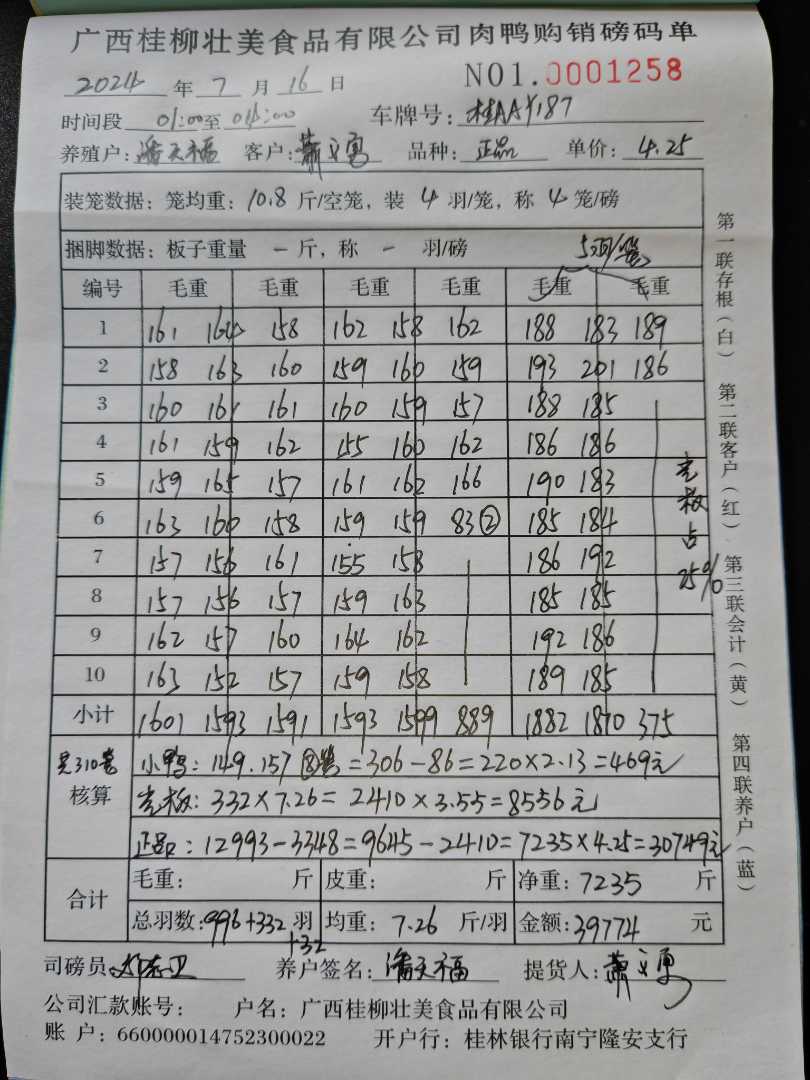 广西桂柳壮美食品有限公司肉鸭购销磅码单
2024 年 7 月 16 日 NO1.0001258
时间段 01:00至 04:00 车牌号: 桂AAY187
养殖户: 潘天福 客户: 品种: 正品 单价: 4.25
装笼数据: 笼均重: 10.8 斤/空笼, 装 4 羽/笼, 称 4 笼/磅
捆脚数据: 板子重量 一 斤, 称 一 羽/磅 5羽/笼
编号 毛重 毛重 毛重 毛重 毛重 毛重
1 161 164 158 162 158 162 188 183 189
2 158 163 160 159 160 159 193 201 186
3 160 161 161 160 159 157 188 185
4 161 159 162 155 160 162 186 186
5 159 165 157 161 162 166 190 183
6 163 160 158 159 159 83② 185 184
7 157 156 161 155 158 186 192
8 157 156 157 159 163 185 185
9 162 157 160 164 162 192 186
10 163 152 157 159 158 189 185
小计 1601 1593 1591 1593 1599 889 1882 1870 375
光板占25%
共310笼
核算
小鸭: 149.157 ⑧笼=306-86=220×2.13=469元
光板: 332×7.26=2410×3.55=8556元
正品: 12993-3348=9645-2410=7235×4.25=30749元
合计
毛重: 斤 皮重: 斤 净重: 7235 斤
总羽数: 996+332 羽 均重: 7.26 斤/羽 金额: 39774 元
+32
司磅员: 养户签名: 潘天福 提货人:
公司汇款账号: 户名: 广西桂柳壮美食品有限公司
账 户: 660000014752300022 开户行: 桂林银行南宁隆安支行
第一联存根(白) 第二联客户(红) 第三联会计(黄) 第四联养户(蓝)